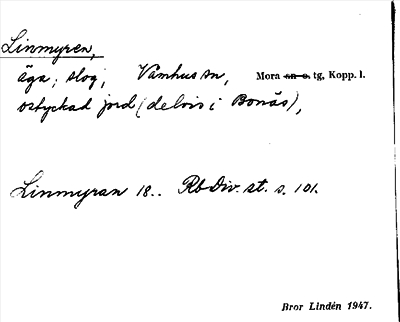 Linmyren,
äga; slog, Våmhus sn, Mora sn o. tg, Kopp. l.
ostyckad jord (delvis i Bonäs),
Linmyran 18.. Rb Div. st. s. 101.
Bror Lindén 1947.